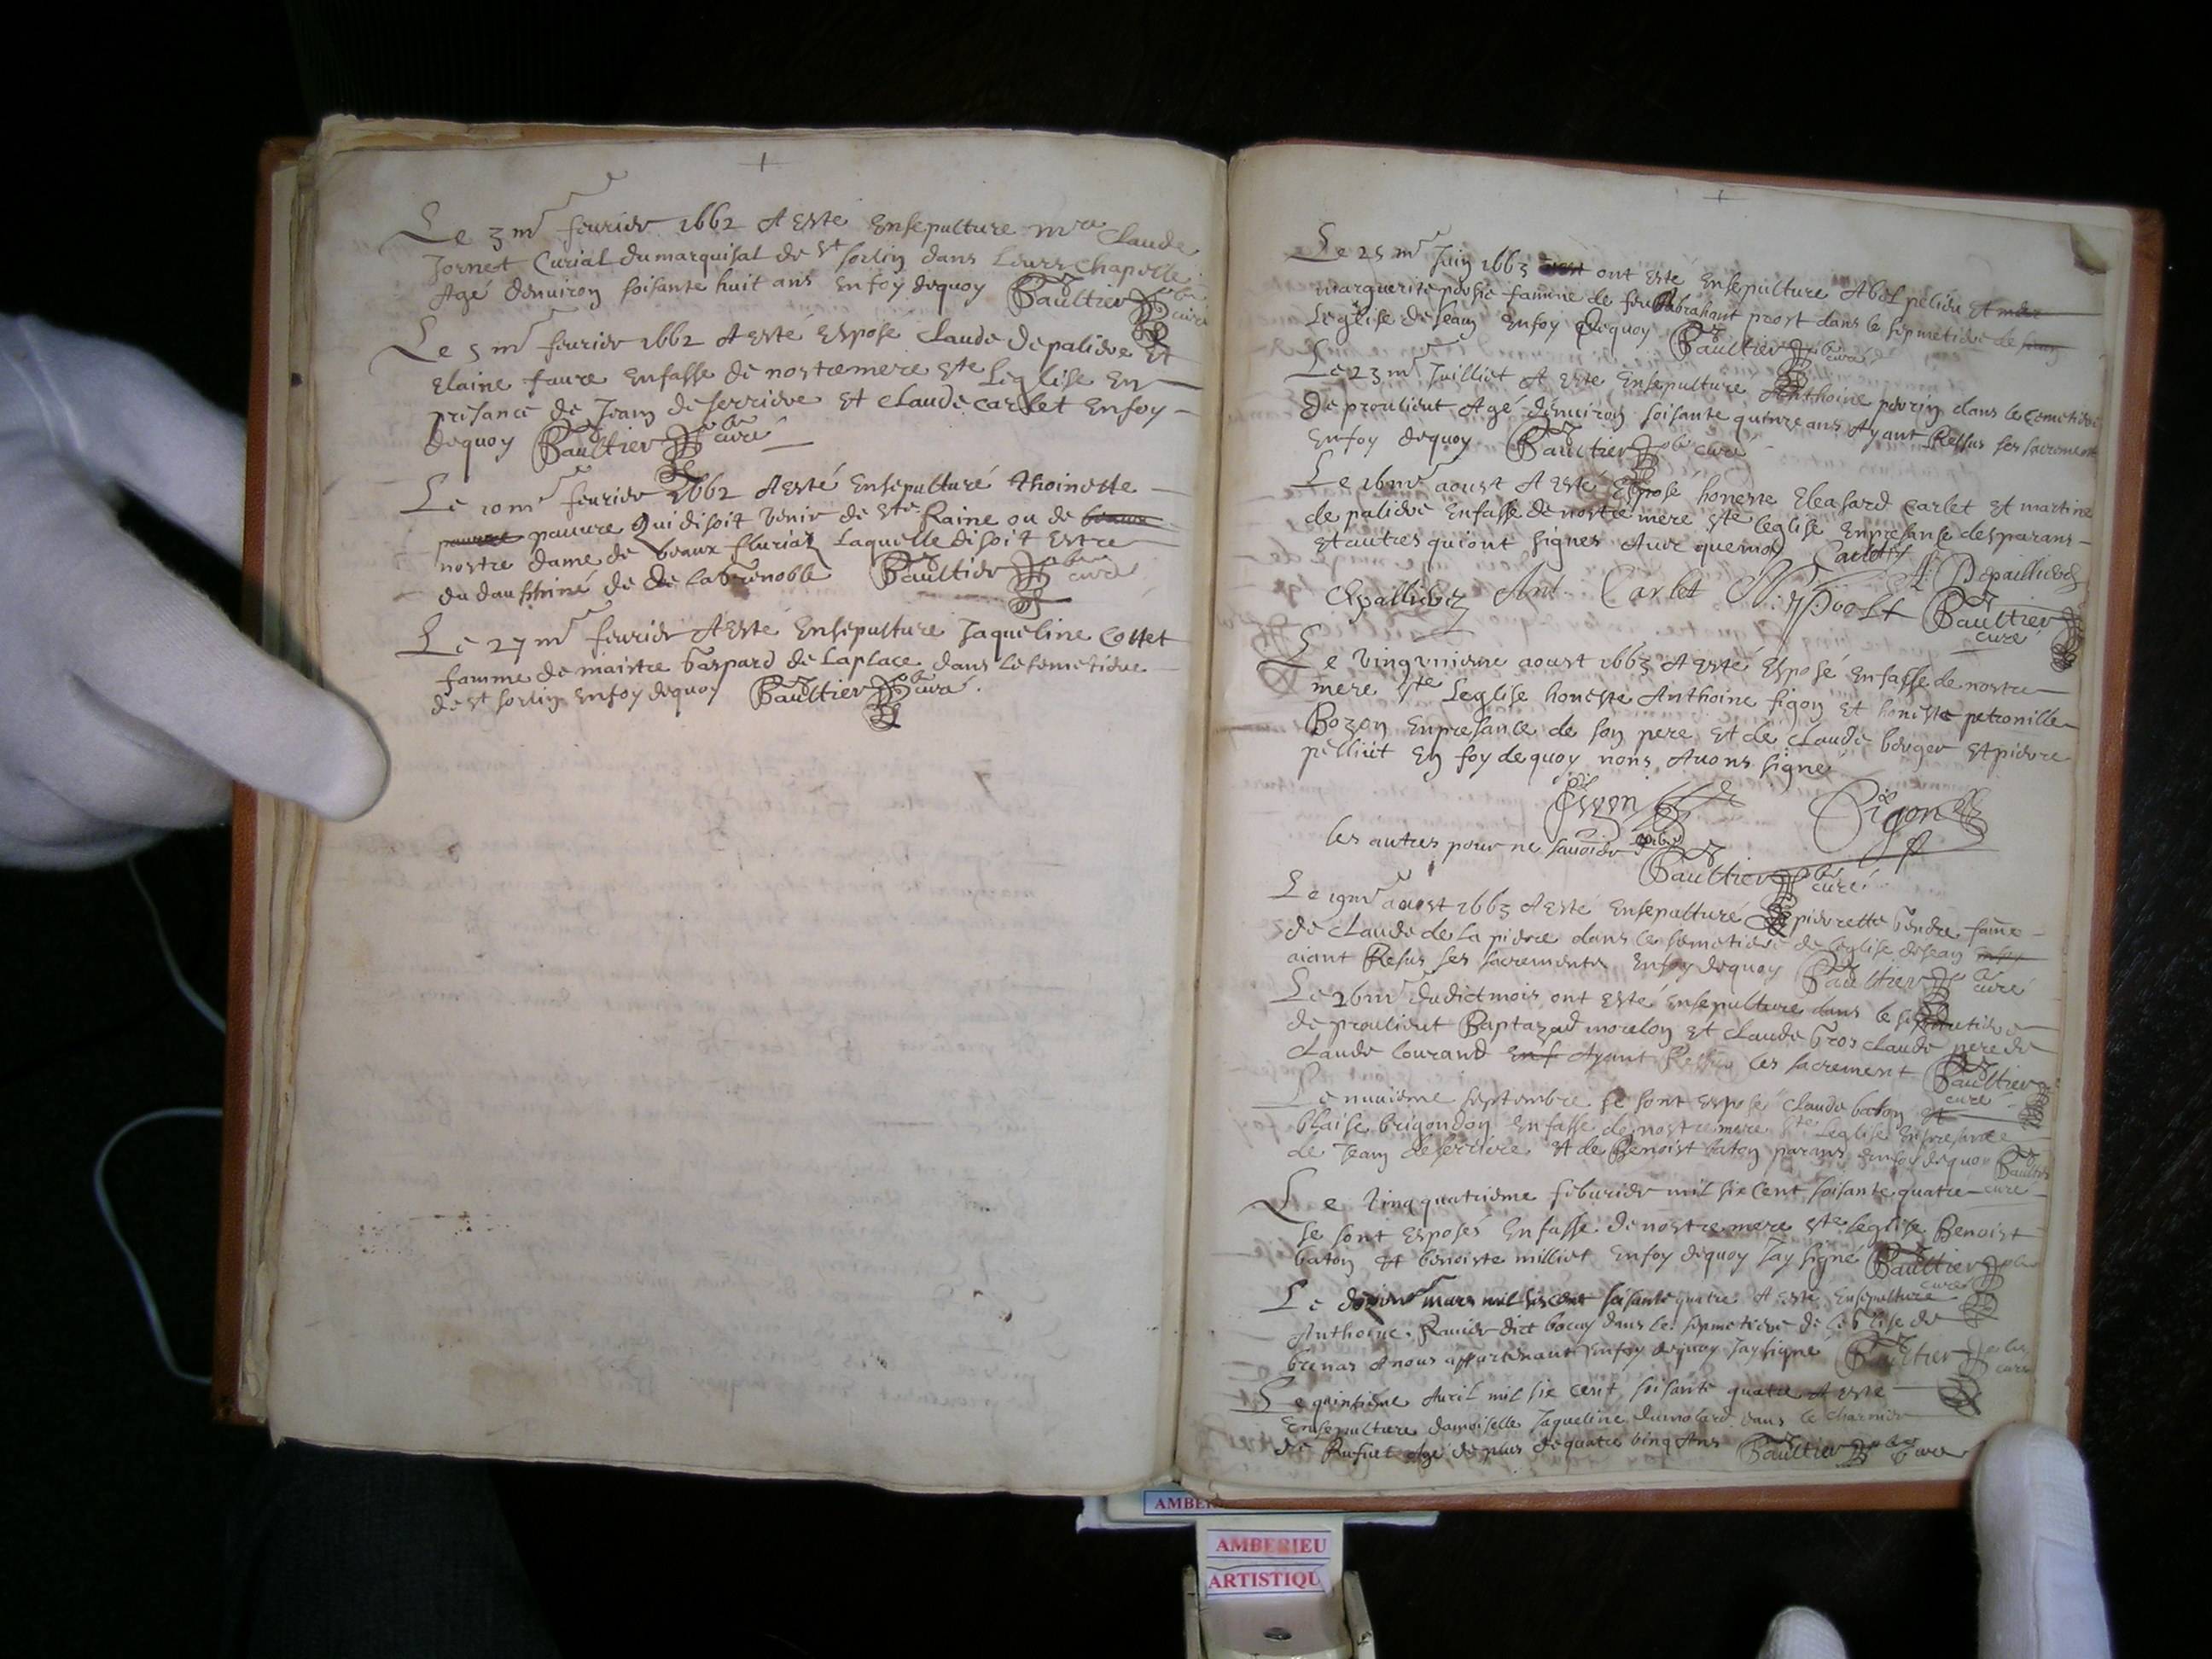 Le 3m̅e feurier 1662 A esté Ensepulture mre Claude
Jornet Curial du marquisat de st sorlin dans Leurs Chapelle
Agé denuiron soisante huit ans En foy dequoy Baultier pbre curé
Le 5 me feurier 1662 A esté Espose Claude depaliere Et
Elaine faure Enfasse de nostre mere ste Leglise En
presance de Jean de serriere Et Claude Carlet En foy
dequoy Baultier pbre curé
Le 10 me feurier 1662 A esté Ensepulturé thoinette
pauure Qui disoit Venir de ste Raine ou de
nostre dame de beaux Laquelle disoit Estre
du dausphiné de de la Grenoble Baultier pbre curé
Le 27 me feurier A esté Ensepulture Jaqueline Cottet
famme de maistre Gaspard de Laplace dans Le semetiere
de st sorlin En foy dequoy Baultier pbre curé.
Le 25 me Juin 1663 ont esté Ensepulture Abel Et
marguerite famme de feu Abrahant prost dans le sepmetiere de
Leglise de sean En foy dequoy Baultier pbre curé
Le 23 me Juilliet A esté Ensepulture Anthoine perrin dans le Cemetiere
de proulieut Agé denuiron soisante quinze ans Ayant Ressus ses sacrement
En foy dequoy Baultier pbre curé
Le 16 me aoust A esté Esposé honeste Eleasard Carlet Et martine
de paliere Enfasse de nostre mere ste leglise En presanse des parans
Et autres qui ont signés Auec quemoy Carlet Depallieres
Ant. Carlet Baultier
curé
Le Vingvnieme aoust 1663 A esté Esposé En fasse de nostre
mere ste Leglise honeste Anthoine figon Et honeste petronille
Bozon En presance de son pere Et de Claude berger Et pierre
pelliut En foy dequoy nous Auons signé
Figon Figon
les autres pour ne sauoir
Baultier pbre curé
Le 19 me aoust 1663 A esté Ensepulturé pierrette Gendre fame
de Claude de La pierre dans le semetiere de leglise de sean
aiant Resus ses sacrements En foy dequoy Baultier curé
Le 26 me dudict mois ont esté Ensepulture dans le semetiere
de proulieut Baptazard morelon Et Claude Gros Claude pere de
Claude Courand Ayant les sacrement Baultier
curé
Le nuuieme septembre se sont Espose Claude baton Et
blaise brigondon En fasse de nostre mere ste Leglise En presance
de Jean deserriere Et de Benoist baton parans En foy dequoy Baultier
curé
Le Vingquatrieme feburier mil six Cent soisante quatre
se sont Esposés En fasse de nostre mere ste leglise Benoist
baton Et benoiste milliet En foy dequoy Jay signé Baultier pbre
curé
Le mars mil six cent soisante quatre A esté Ensepulture
Anthoine Rauier dict dans le sepmetiere de leglise de
brenas A nous appartenant En foy dequoy Jay signé Baultier pbre curé
Le quinsieme Auril mil six cent soisante quatre A esté
Ensepulture damoiselle Jaqueline dumolard dans le charnier
de Agé de plus de quatre vingt Ans Baultier pbre curé
AMBERIEU
ARTISTIQU